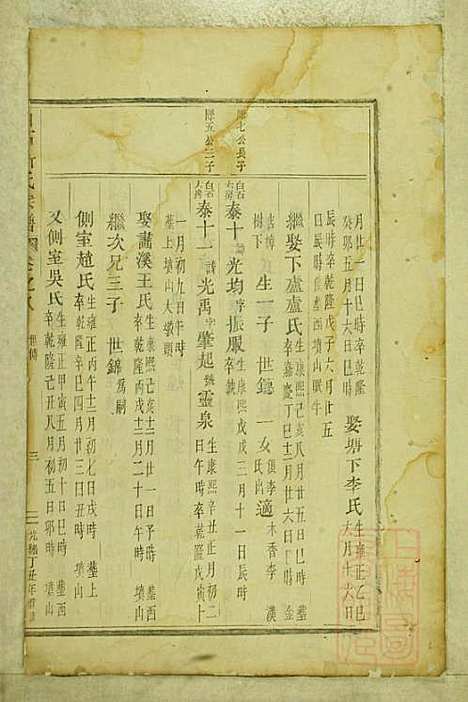 月廿一日巳時卒乾隆
癸卯五月十六日巳時
娶塘下李氏
生雍正乙巳
六月十六日
辰時卒乾隆戊子六月廿五
日辰時
西塘山
繼娶下盧盧氏
生康熙己亥八月廿五日巳時
卒嘉慶丁巳十二月廿六日
樹下
生一子
世鐩
一女
適
木香李
李氏出
隆七公長子
白石
大房
泰十
諱
光均
字
振服
生康熙戊戌三月十一日辰時
隆五公三子
白石
大房
泰十二
諱
光禹
字
肇起
號
靈泉
生康熙辛丑正月初二
日午時卒乾隆戊寅十
一月初九日午時
墓上墳山大墩頭
娶諸溪王氏
生康熙己亥十二月廿一日子時
卒乾隆丙戌十二月二十日
墳山
繼次兄三子
世錦
為嗣
側室趙氏
生雍正丙午十二月初七日戌時
卒乾隆辛巳四月廿三日丑時
墓上
墳山
又側室吳氏
生雍正甲寅五月初十日巳時
卒乾隆己丑八月初五日卯時
墓西
墳山
三
光緒丁丑年